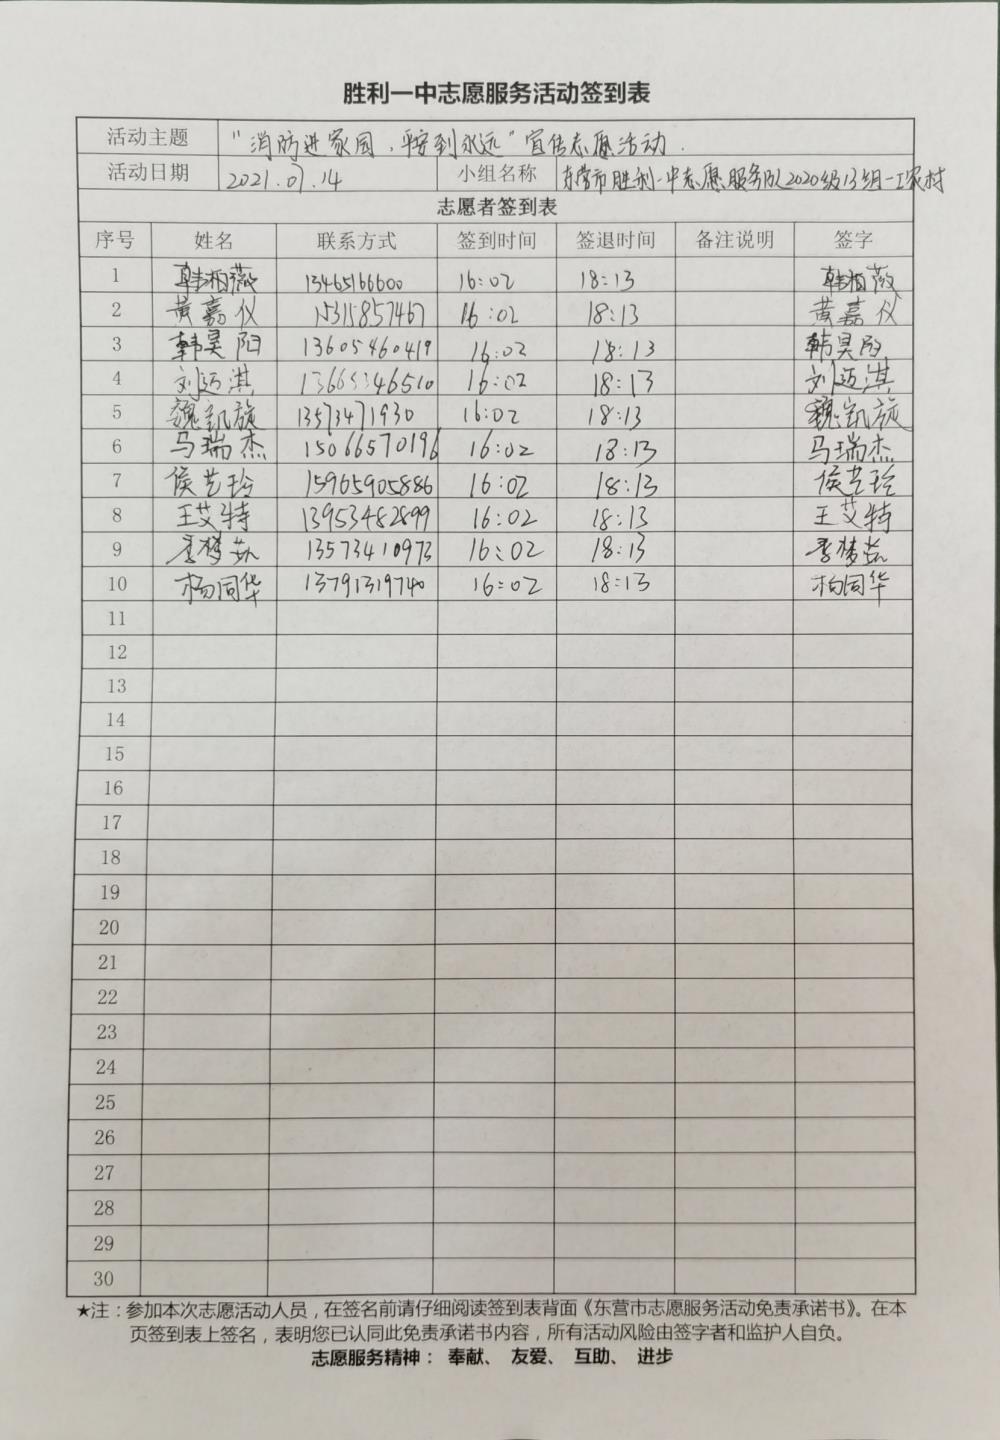 胜利一中志愿服务活动签到表
活动主题 "消防进家园,平安到永远"宣传志愿活动.
活动日期 2021.07.14 小组名称 东营市胜利一中志愿服务队2020级13组-工农村
志愿者签到表
序号 姓名 联系方式 签到时间 签退时间 备注说明 签字
1 韩柏薇 13465166600 16:02 18:13 韩柏薇
2 黄嘉仪 15315857467 16:02 18:13 黄嘉仪
3 韩昊阳 13605460419 16:02 18:13 韩昊阳
4 刘迈淇 13665346510 16:02 18:13 刘迈淇
5 魏凯旋 13573471930 16:02 18:13 魏凯旋
6 马瑞杰 15066570196 16:02 18:13 马瑞杰
7 侯艺玲 15965905886 16:02 18:13 侯艺玲
8 王艾特 13953482899 16:02 18:13 王艾特
9 李梦茹 13573410973 16:02 18:13 李梦茹
10 杨同华 13791319740 16:02 18:13 杨同华
11
12
13
14
15
16
17
18
19
20
21
22
23
24
25
26
27
28
29
30
★注：参加本次志愿活动人员，在签名前请仔细阅读签到表背面《东营市志愿服务活动免责承诺书》。在本
页签到表上签名，表明您已认同此免责承诺书内容，所有活动风险由签字者和监护人自负。
志愿服务精神： 奉献、 友爱、 互助、 进步